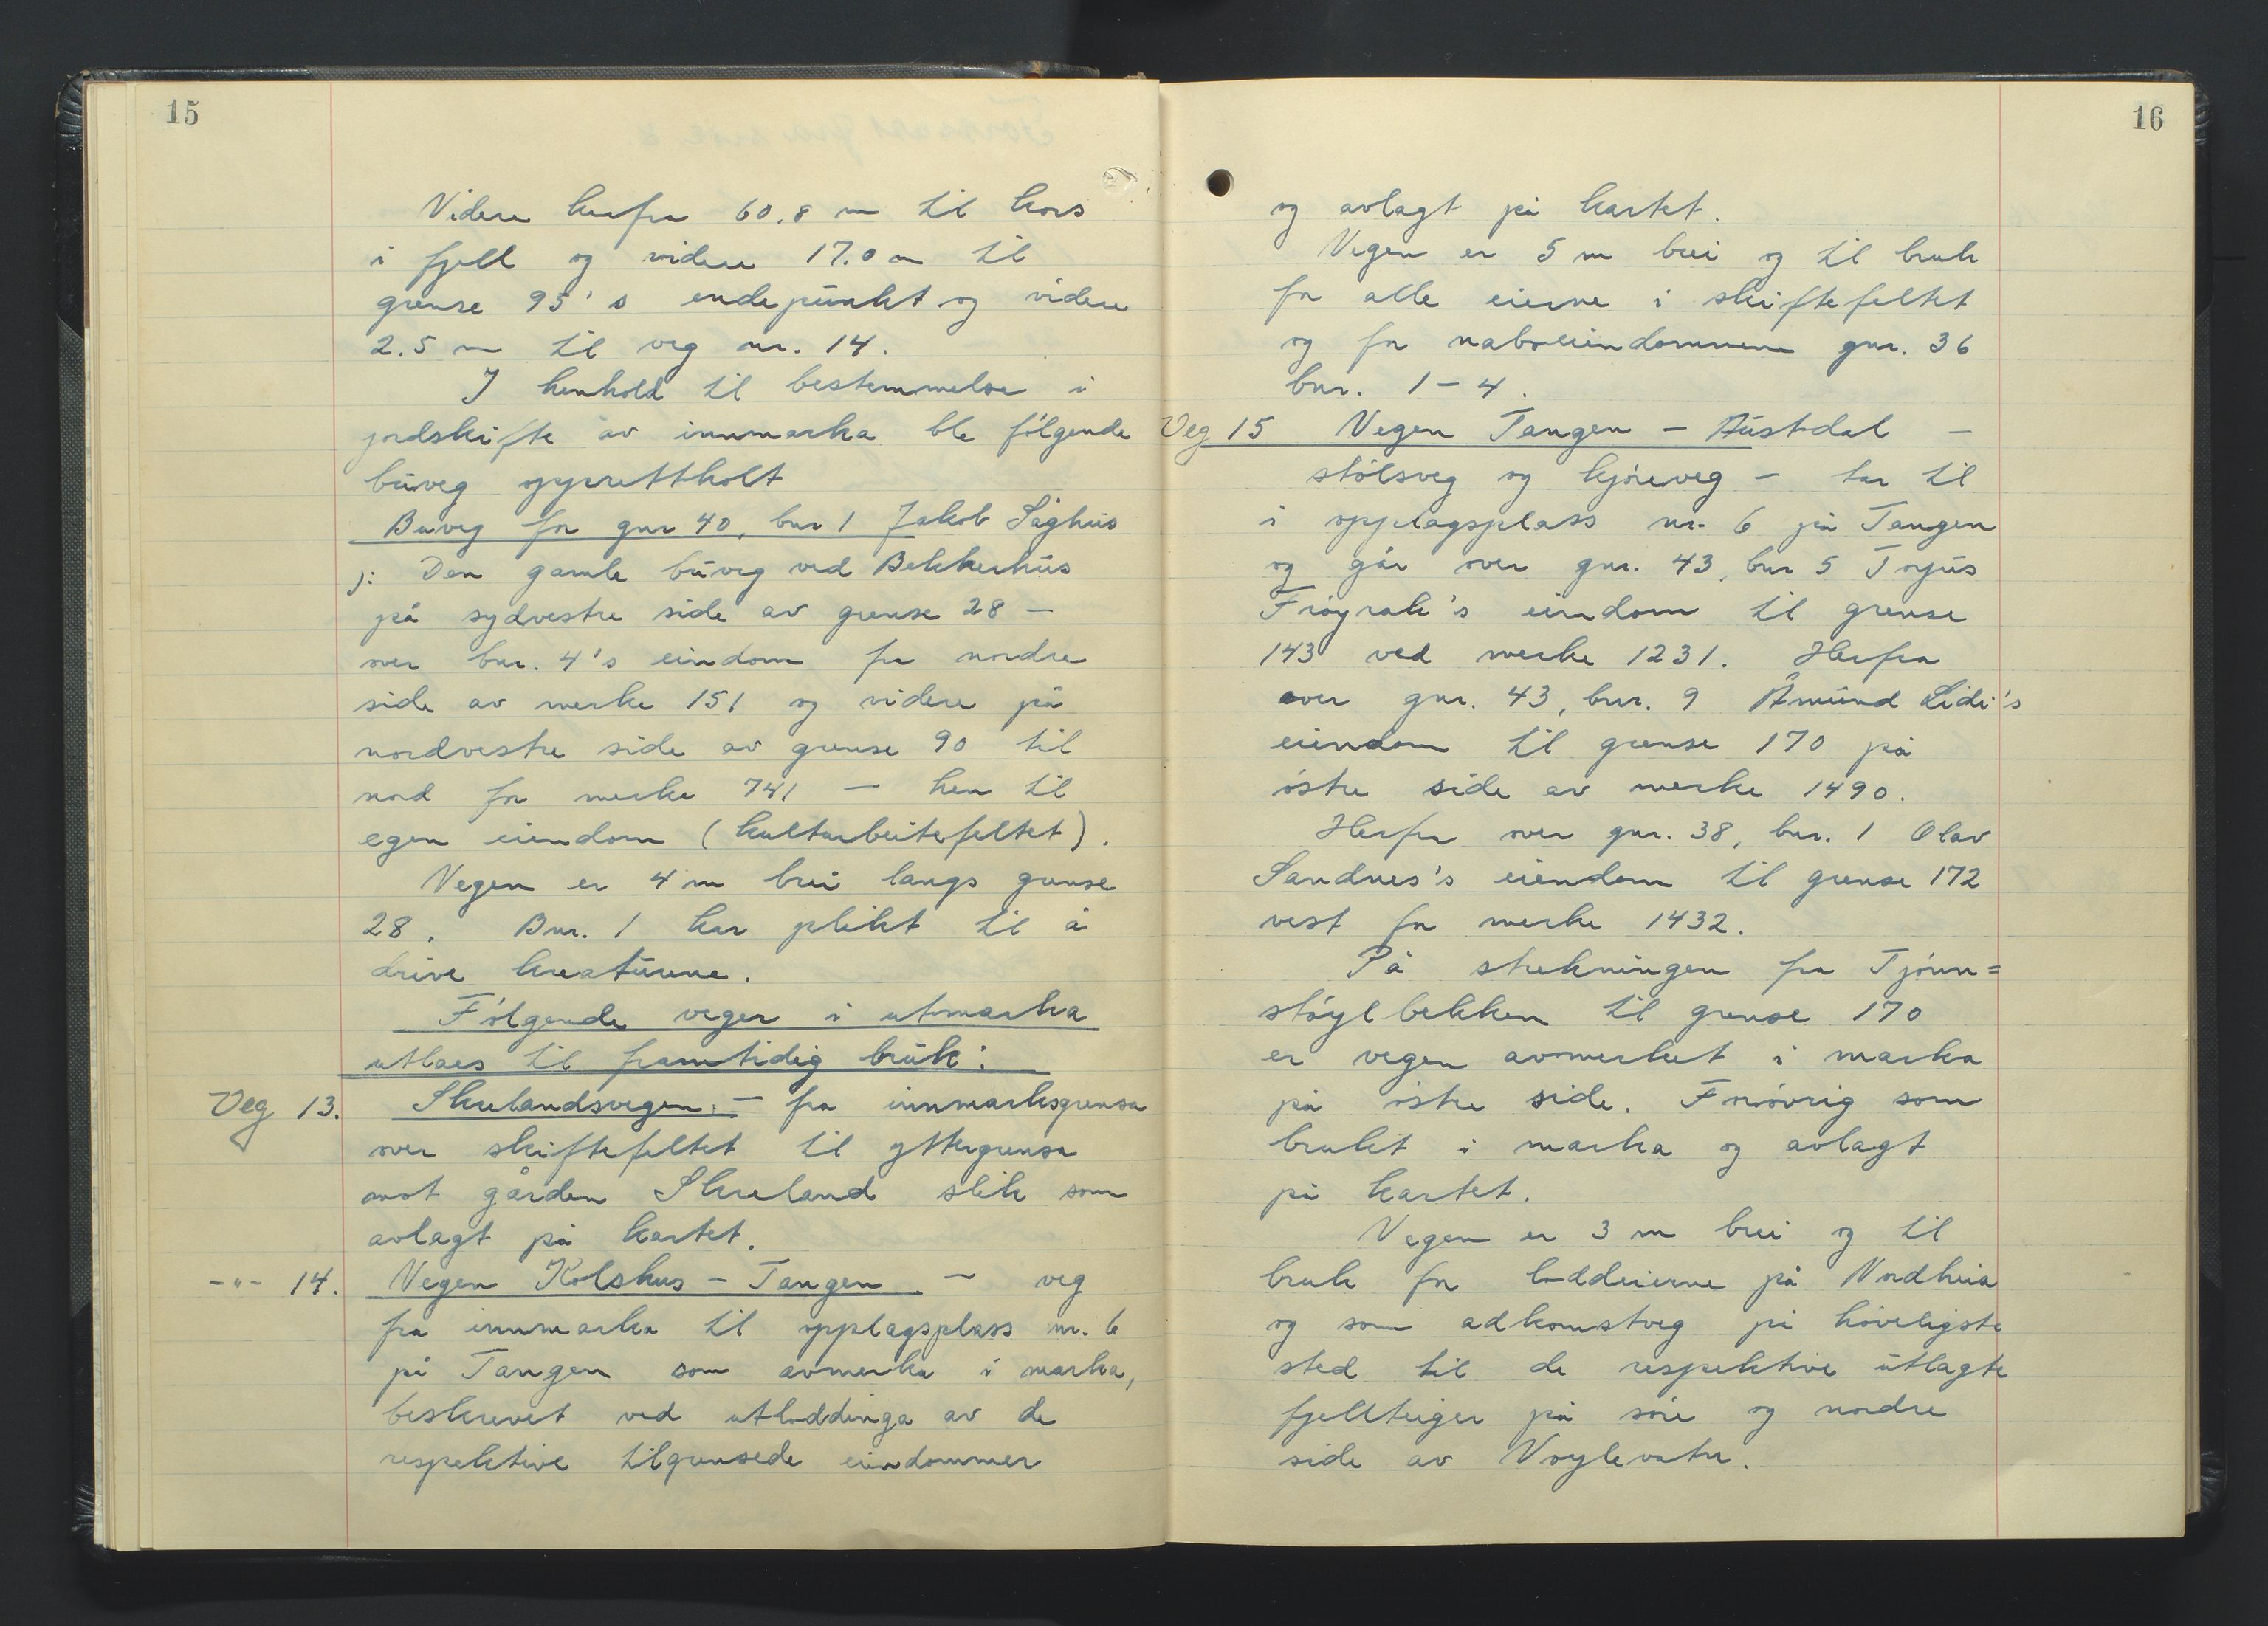 15
Videre herfra 60.8 m til kors
i fjell og videre 17.0 m til
grense 95's endepunkt og videre
2.5 m til veg nr. 14.
I henhold til bestemmelse i
jordskifte av innmarka ble følgende
buveg opprettholt
Buveg for gnr 40, bnr 1 Jakob Såghus
ɔ: Den gamle buveg ved Bekkerhus
på sydvestre side av grense 28 –
over bnr. 4's eiendom fra nordre
side av merke 151 og videre på
nordvestre side av grense 90 til
nord for merke 741 – hen til
egen eiendom (kulturbeitefeltet).
Vegen er 4 m brei langs grense
28. Bnr. 1 har plikt til å
drive kreaturene.
Følgende veger i utmarka
utlaes til framtidig bruk:
Veg 13. Skrelandsvegen. – fra innmarksgrensa
over skiftefeltet til yttergrensa
mot gården Skreland slik som
avlagt på kartet.
-"- 14. Vegen Kolshus – Tangen. – veg
fra innmarka til opplagsplass nr. 6
på Tangen som avmerka i marka,
beskrevet ved utloddinga av de
respektive tilgrensede eiendommer
16
og avlagt på kartet.
Vegen er 5 m brei og til bruk
for alle eierne i skiftefeltet
og for naboeiendommene gnr. 36
bnr. 1 – 4.
Veg 15 Vegen Tangen – Austdal –
stølsveg og kjøreveg – tar til
i opplagsplass nr. 6 på Tangen
og går over gnr. 43, bnr 5 Torjus
Frøyrak's eiendom til grense
143 ved merke 1231. Herfra
over gnr. 43, bnr. 9 Åmund Lidi's
eiendom til grense 170 på
østre side av merke 1490.
Herfra over gnr. 38, bnr. 1 Olav
Sandnes's eiendom til grense 172
vest for merke 1432.
På strekningen fra Tjønn=
støylbekken til grense 170
er vegen avmerket i marka
på østre side. Forøvrig som
brukt i marka og avlagt
på kartet.
Vegen er 3 m brei og til
bruk for loddeierne på Nordheia
og som adkomstveg på høveligste
sted til de respektive utlagte
fjellteiger på søre og nordre
side av Voylevatn.